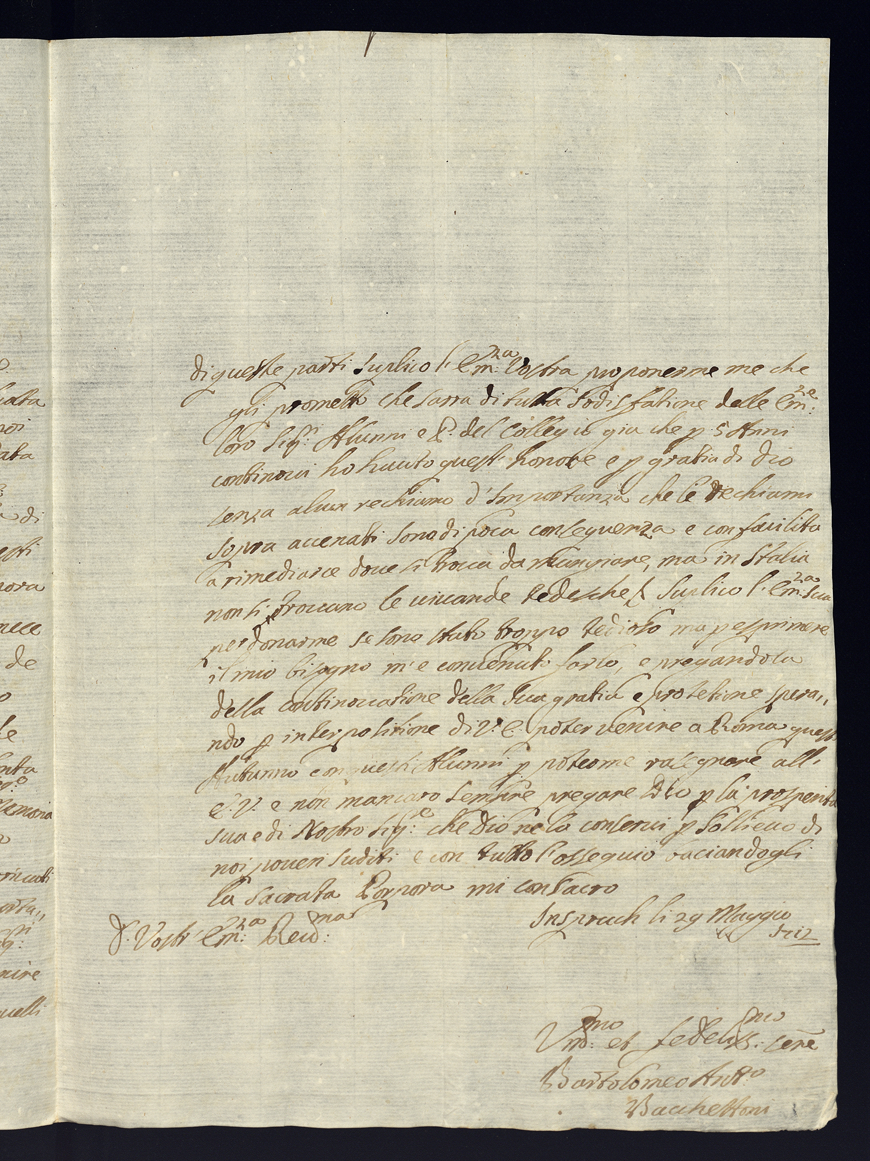 di queste parti suplico l' Em:nza Vostra proponerne me che
gli prometto che sarra di tutta sodisfatione delle Em:ze
loro Sig:ri Alunni e P. del Collegio gia che p 5 Anni
continoui ho hauto quest' honore e p gratia di Dio
senza alcun rechiamo d'Importanza che le Rechiami
sopra accenati sono di poca conseguenza e con facilita
a rimediarce doue si tocca da mangiare, ma in Italia
non si trouano le uiuande tedesche, Suplico l' Em:nza sua
perdonarme se sono stato troppo tedioso ma p esprimere
il mio bisogno m'e conuenuto farlo, e pregandola
della continouatione della sua gratia e protetione spera,,
ndo p interpositione di V. E. poter venire a Roma quest'
Autunno con questi Alunni p poterme rasegnare all'
E. V. e non mancaro sempre pregare Dio p la prosperita
sua e di Nostro Sig:re che Dio ne lo conserui p sollieuo di
noi poueri suditi e con tutto l'ossequio baciandogli
la Sacrata Porpora mi consacro
Inspruch li 29 Maggio
D. Vostr' Em:nza Reud:ma
Um:mo et fedeliss:mo sere
Bartolomeo Anto
Bacchettoni